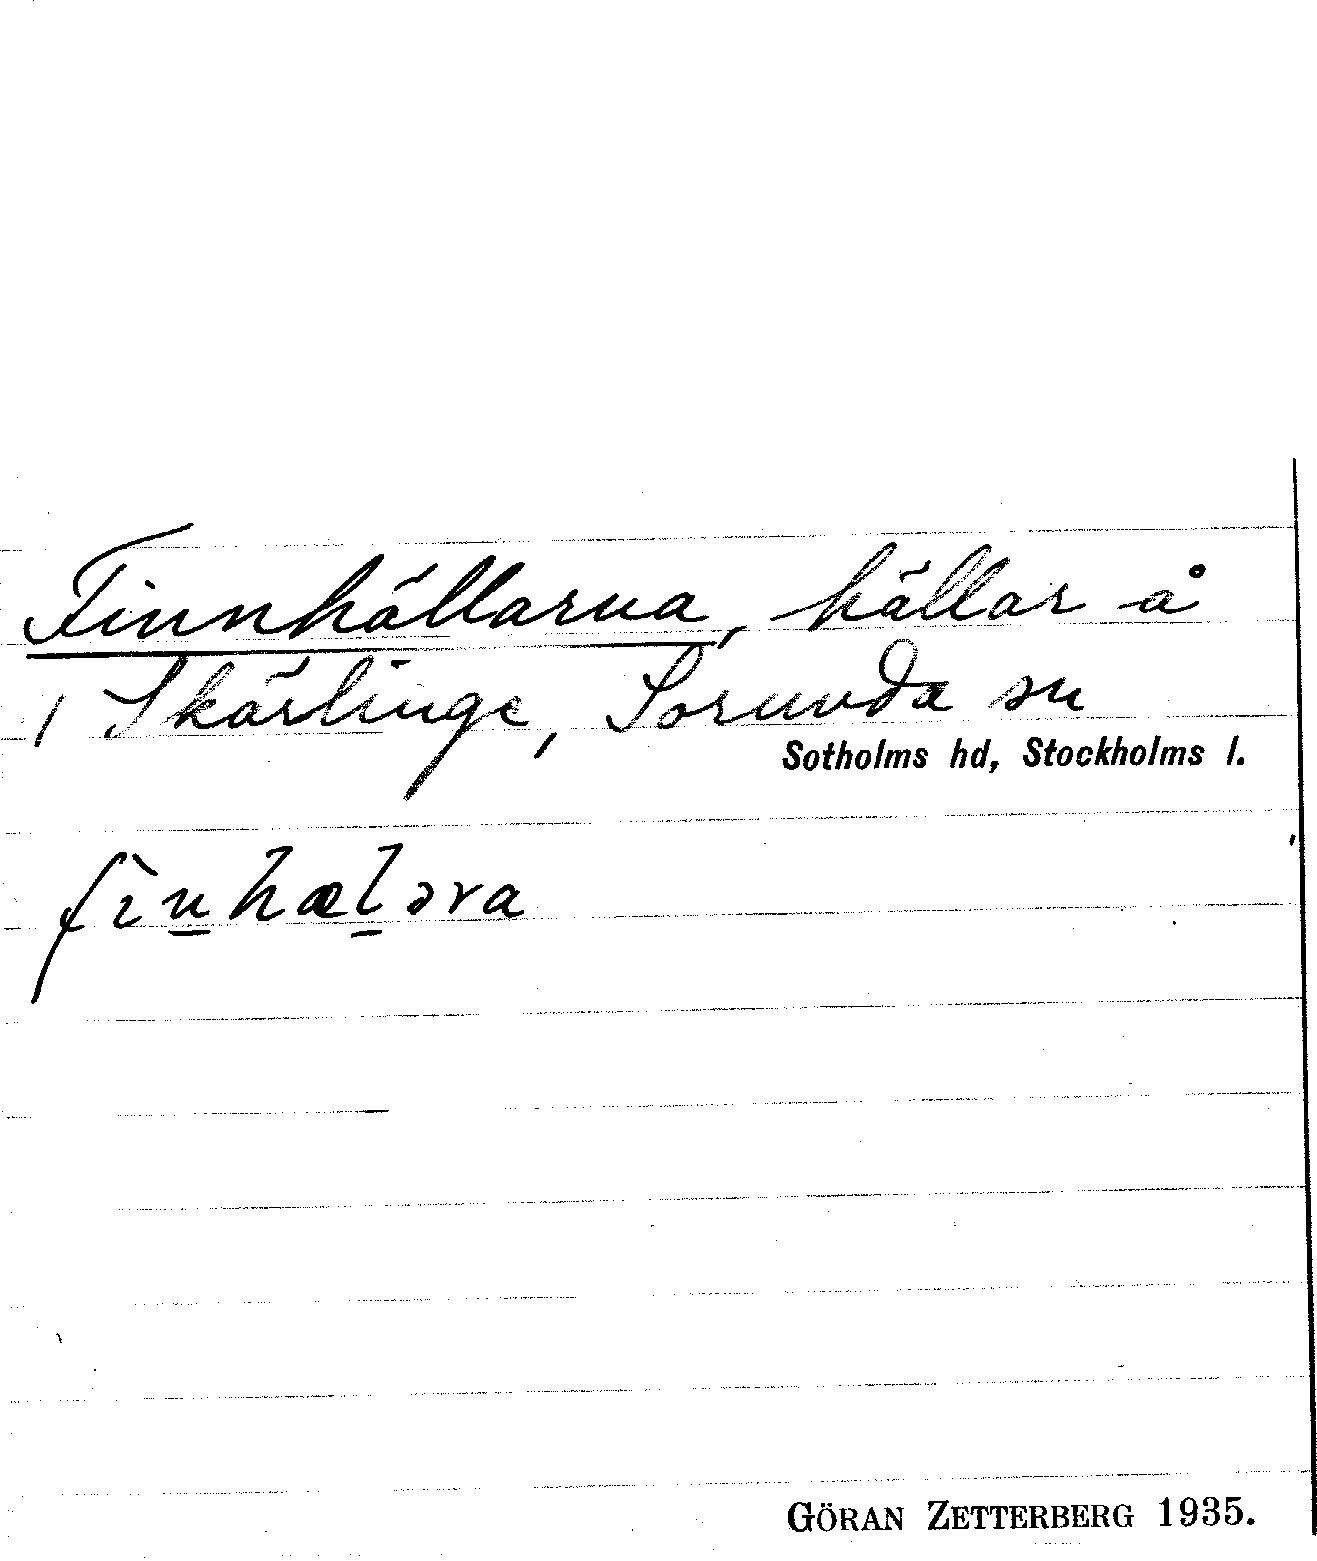 Finnhällarna, hällar å
/ Skärlinge, Sorunda sn
Sotholms hd, Stockholms l.
fìn̲hæl̲əra
GÖRAN ZETTERBERG 1935.